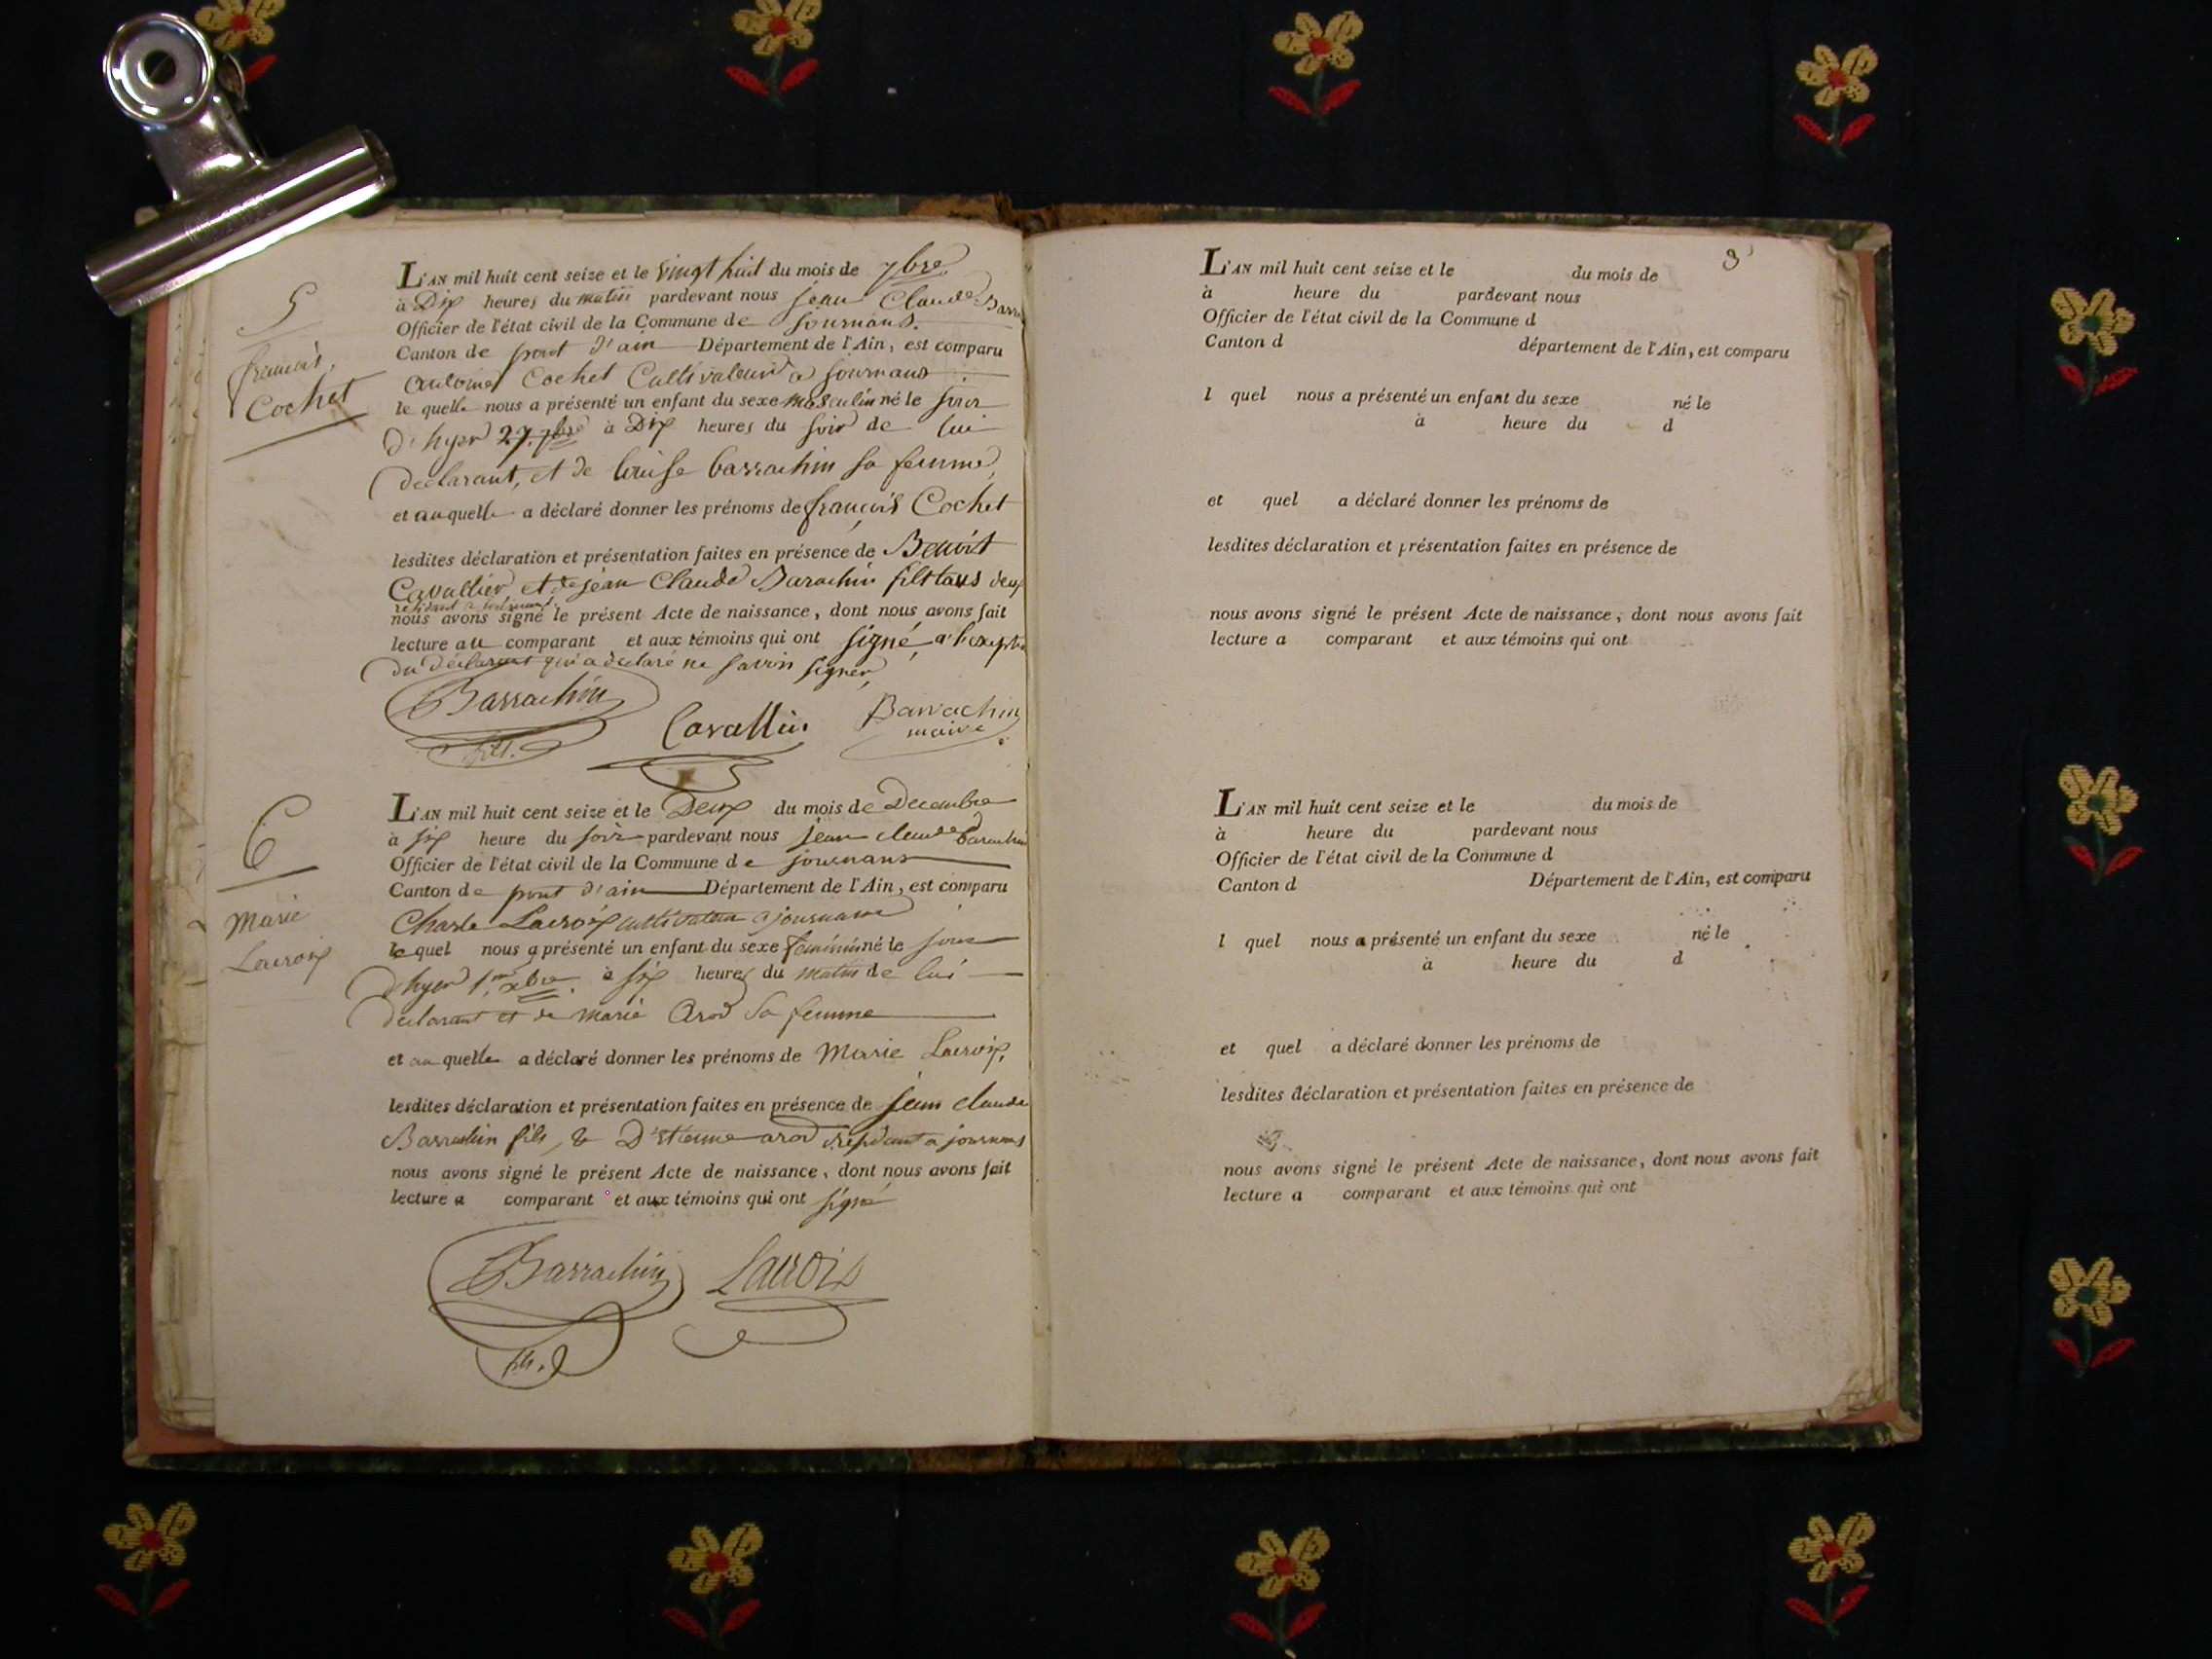 5
françois
Cochet
L'AN mil huit cent seize et le vingt huit du mois de 7bre
à Dix heures du matin pardevant nous jean Claude Barra
Officier de l'état civil de la Commune de journans.
Canton de pont d'ain Département de l'Ain, est comparu
antoine Cochet Cultivateur a journans
le quelle nous a présenté un enfant du sexe masculin né le jour
d'hyer 27. 7bre à Dix heures du soir de lui
declarant, et de louise barrachin sa femme,
et auquelle a déclaré donner les prénoms de françois Cochet
lesdites déclaration et présentation faites en présence de Benoit
Cavallier, et de jean Claude Barachin fils tous deux
residant a journans
nous avons signé le présent Acte de naissance, dont nous avons fait
lecture au comparant et aux témoins qui ont signé, a l'exception
du déclarant qui a declaré ne savoir signer,
Barrachin fils. Cavallier Barrachin maire
6
Marie
Lacroix
L'AN mil huit cent seize et le Deux du mois de Decembre
à six heure du soir pardevant nous jean claude barachin
Officier de l'état civil de la Commune de journans
Canton de pont d'ain Département de l'Ain, est comparu
Charle Lacroix cultivateur a journans
le quel nous a présenté un enfant du sexe feminin né le jour
d'hyer 1er xbre. à six heures du matin de lui
declarant et de marie arod sa femme
et au quelle a déclaré donner les prénoms de Marie Lacroix,
lesdites déclaration et présentation faites en présence de jean claude
Barrachin fils, & D'etienne arod residant a journans
nous avons signé le présent Acte de naissance, dont nous avons fait
lecture a comparant et aux témoins qui ont signé
Barrachin fils. Lacroix
3
L'AN mil huit cent seize et le du mois de
à heure du pardevant nous
Officier de l'état civil de la Commune d
Canton d département de l'Ain, est comparu
l quel nous a présenté un enfant du sexe né le
à heure du d
et quel a déclaré donner les prénoms de
lesdites déclaration et présentation faites en présence de
nous avons signé le présent Acte de naissance, dont nous avons fait
lecture a comparant et aux témoins qui ont
L'AN mil huit cent seize et le du mois de
à heure du pardevant nous
Officier de l'état civil de la Commune d
Canton d Département de l'Ain, est comparu
l quel nous a présenté un enfant du sexe né le
à heure du d
et quel a déclaré donner les prénoms de
lesdites déclaration et présentation faites en présence de
nous avons signé le présent Acte de naissance, dont nous avons fait
lecture a comparant et aux témoins qui ont